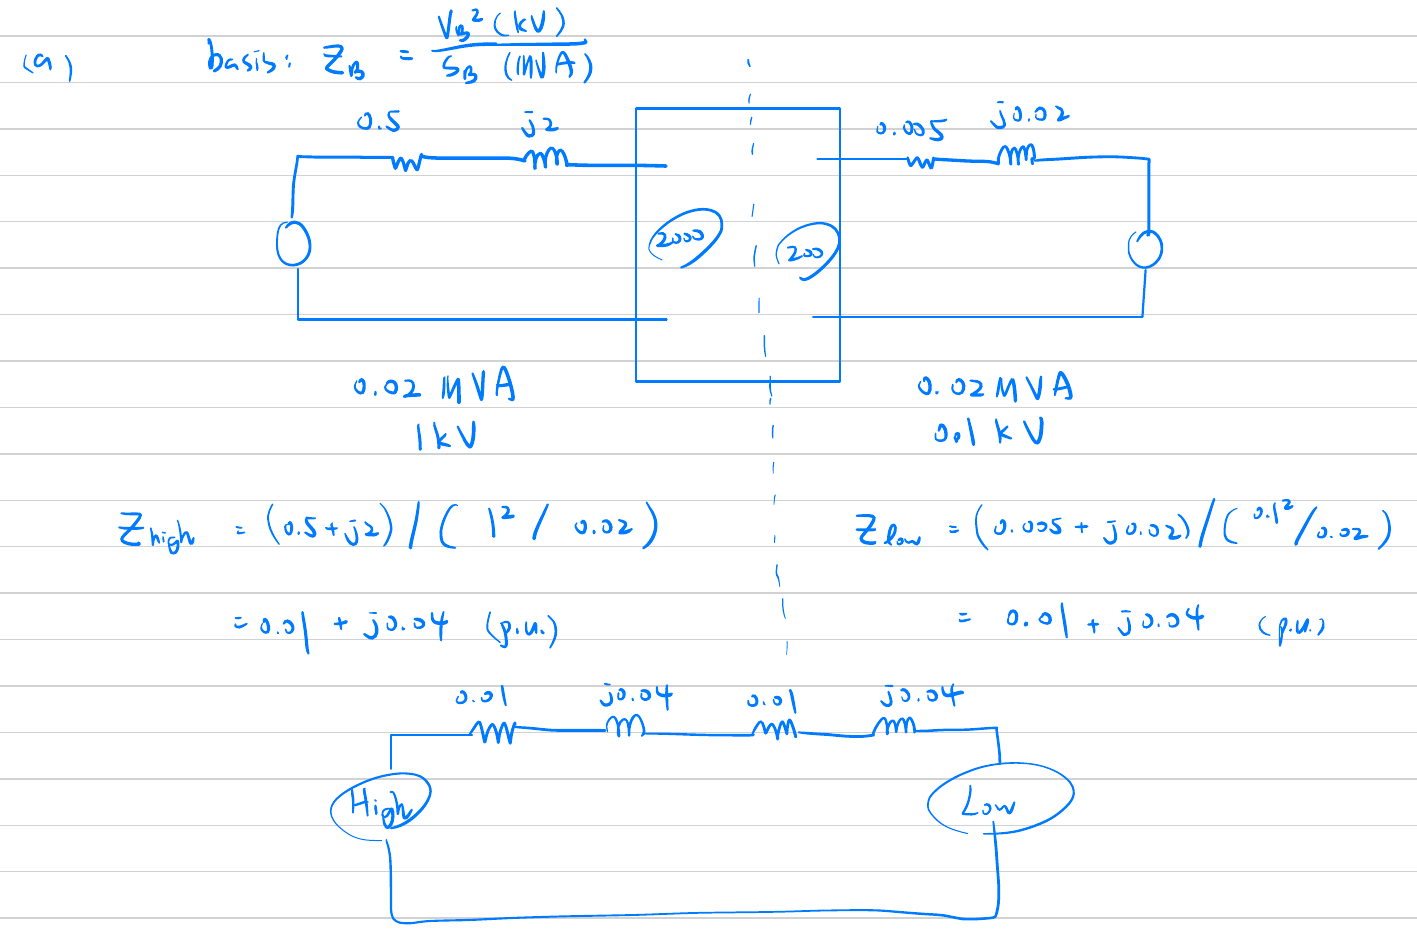 (a) basis: Z_B = V_B² (kV) / S_B (MVA)
0.5 j2 0.005 j0.02
2000 200
0.02 MVA 0.02 MVA
1 kV 0.1 kV
Z_high = (0.5 + j2) / ( 1² / 0.02 ) Z_low = (0.005 + j0.02) / ( 0.1² / 0.02 )
= 0.01 + j0.04 (p.u.) = 0.01 + j0.04 (p.u.)
0.01 j0.04 0.01 j0.04
High Low